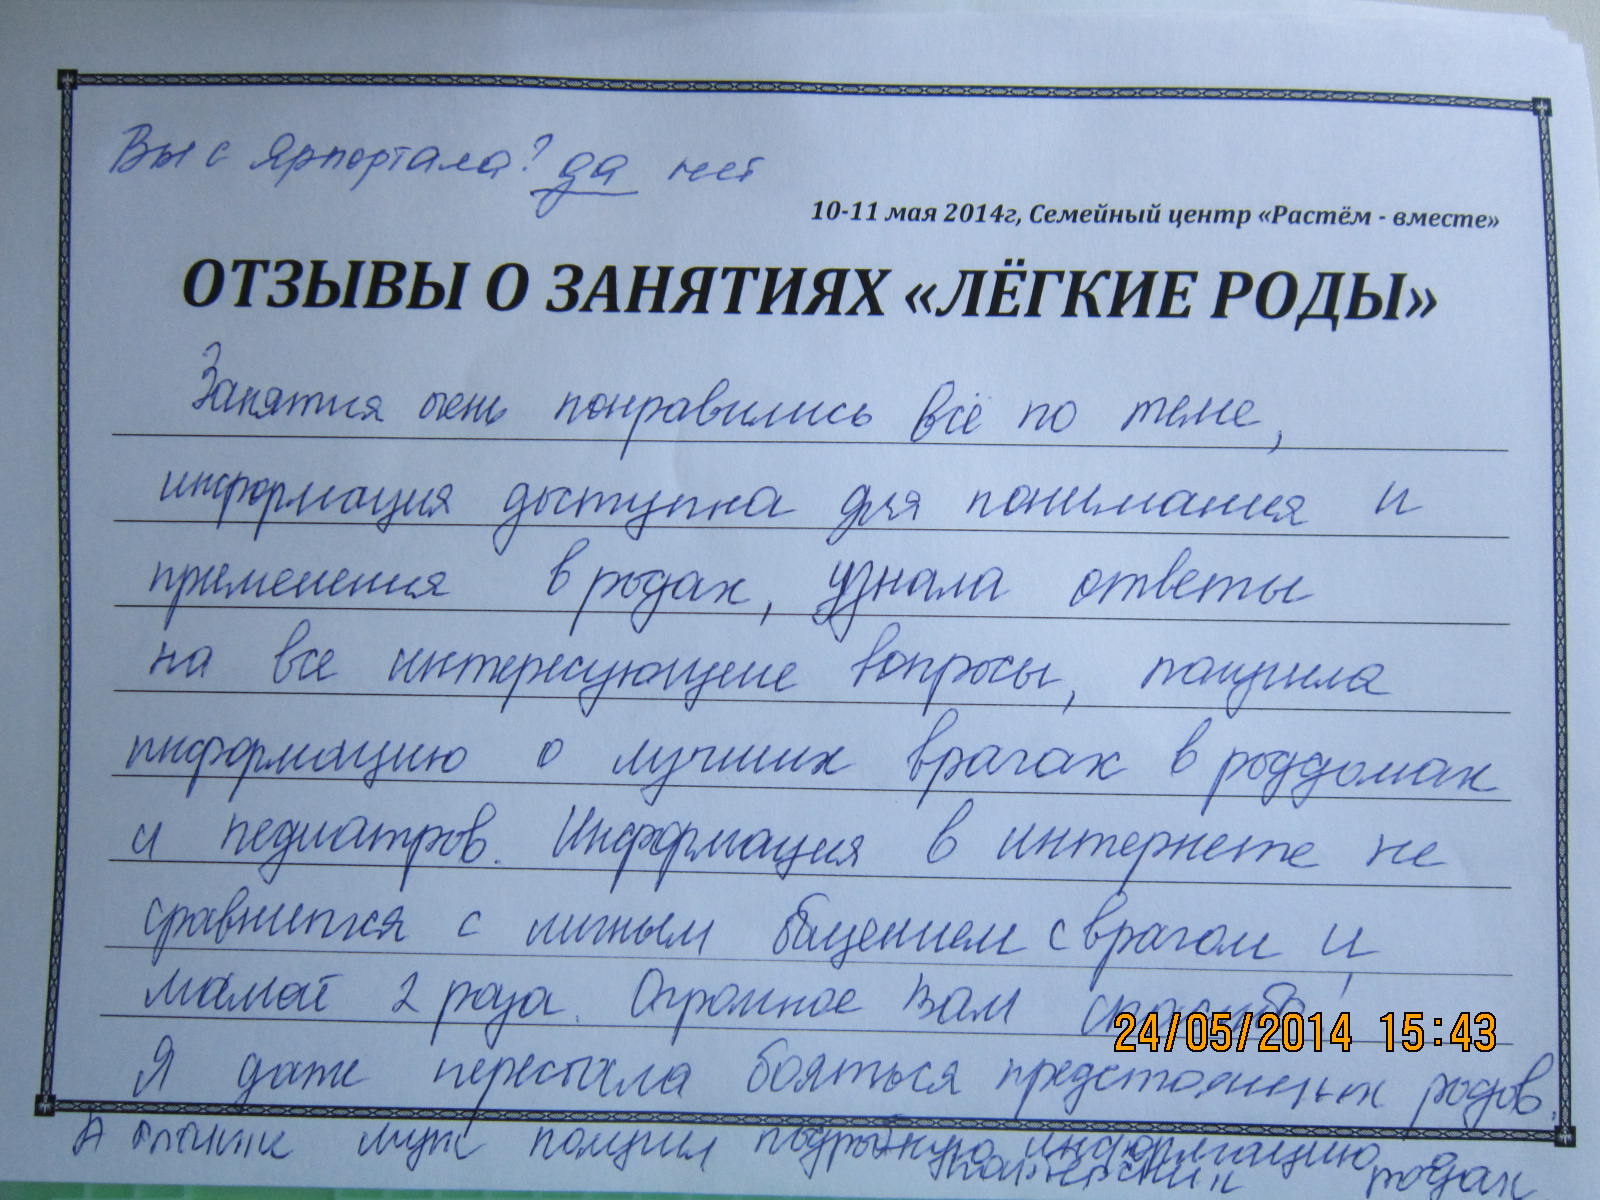 Вы с Ярпортала? да нет
10-11 мая 2014г, Семейный центр «Растём - вместе»
ОТЗЫВЫ О ЗАНЯТИЯХ «ЛЁГКИЕ РОДЫ»
Занятия очень понравились всё по теме,
информация доступна для понимания и
применения в родах, узнала ответы
на все интересующие вопросы, получила
информацию о лучших врачах в роддомах
и педиатров. Информация в интернете не
сравнится с личным общением с врачом и
мамой 2 раза. Огромное Вам спасибо.
24/05/2014 15:43
Я даже перестала бояться предстоящих родов.
А также муж получил подробную информацию о
партнерских родах